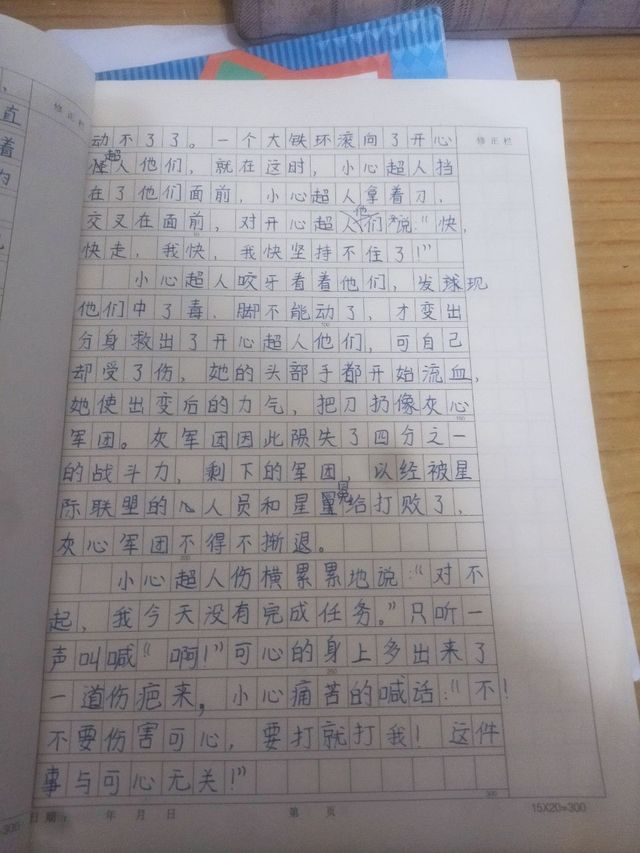 修正栏
直
着
动不了了。一个大铁环滚向了开心
超人他们，就在这时，小心超人挡
在了他们面前，小心超人拿着刀，
交叉在面前，对开心超人他们说：“快，
快走，我快，我快坚持不住了！”
小心超人咬牙看着他们，发球现
他们中了毒，脚不能动了，才变出
分身救出了开心超人他们，可自己
却受了伤，她的头部手都开始流血，
她使出变后的力气，把刀扔像灰心
军团。灰军团因此陨失了四分之一
的战斗力，剩下的军团，以经被星
际联盟的人员和星星给打败了，
灰心军团不得不撕退。
小心超人伤横累累地说：“对不
起，我今天没有完成任务。”只听一
声叫喊“啊！”可心的身上多出来了
一道伤疤来，小心痛苦的喊话：“不！
不要伤害可心，要打就打我！这件
事与可心无关！”
修正栏
100
200
300
日期： 年 月 日 第 页
15X20=300